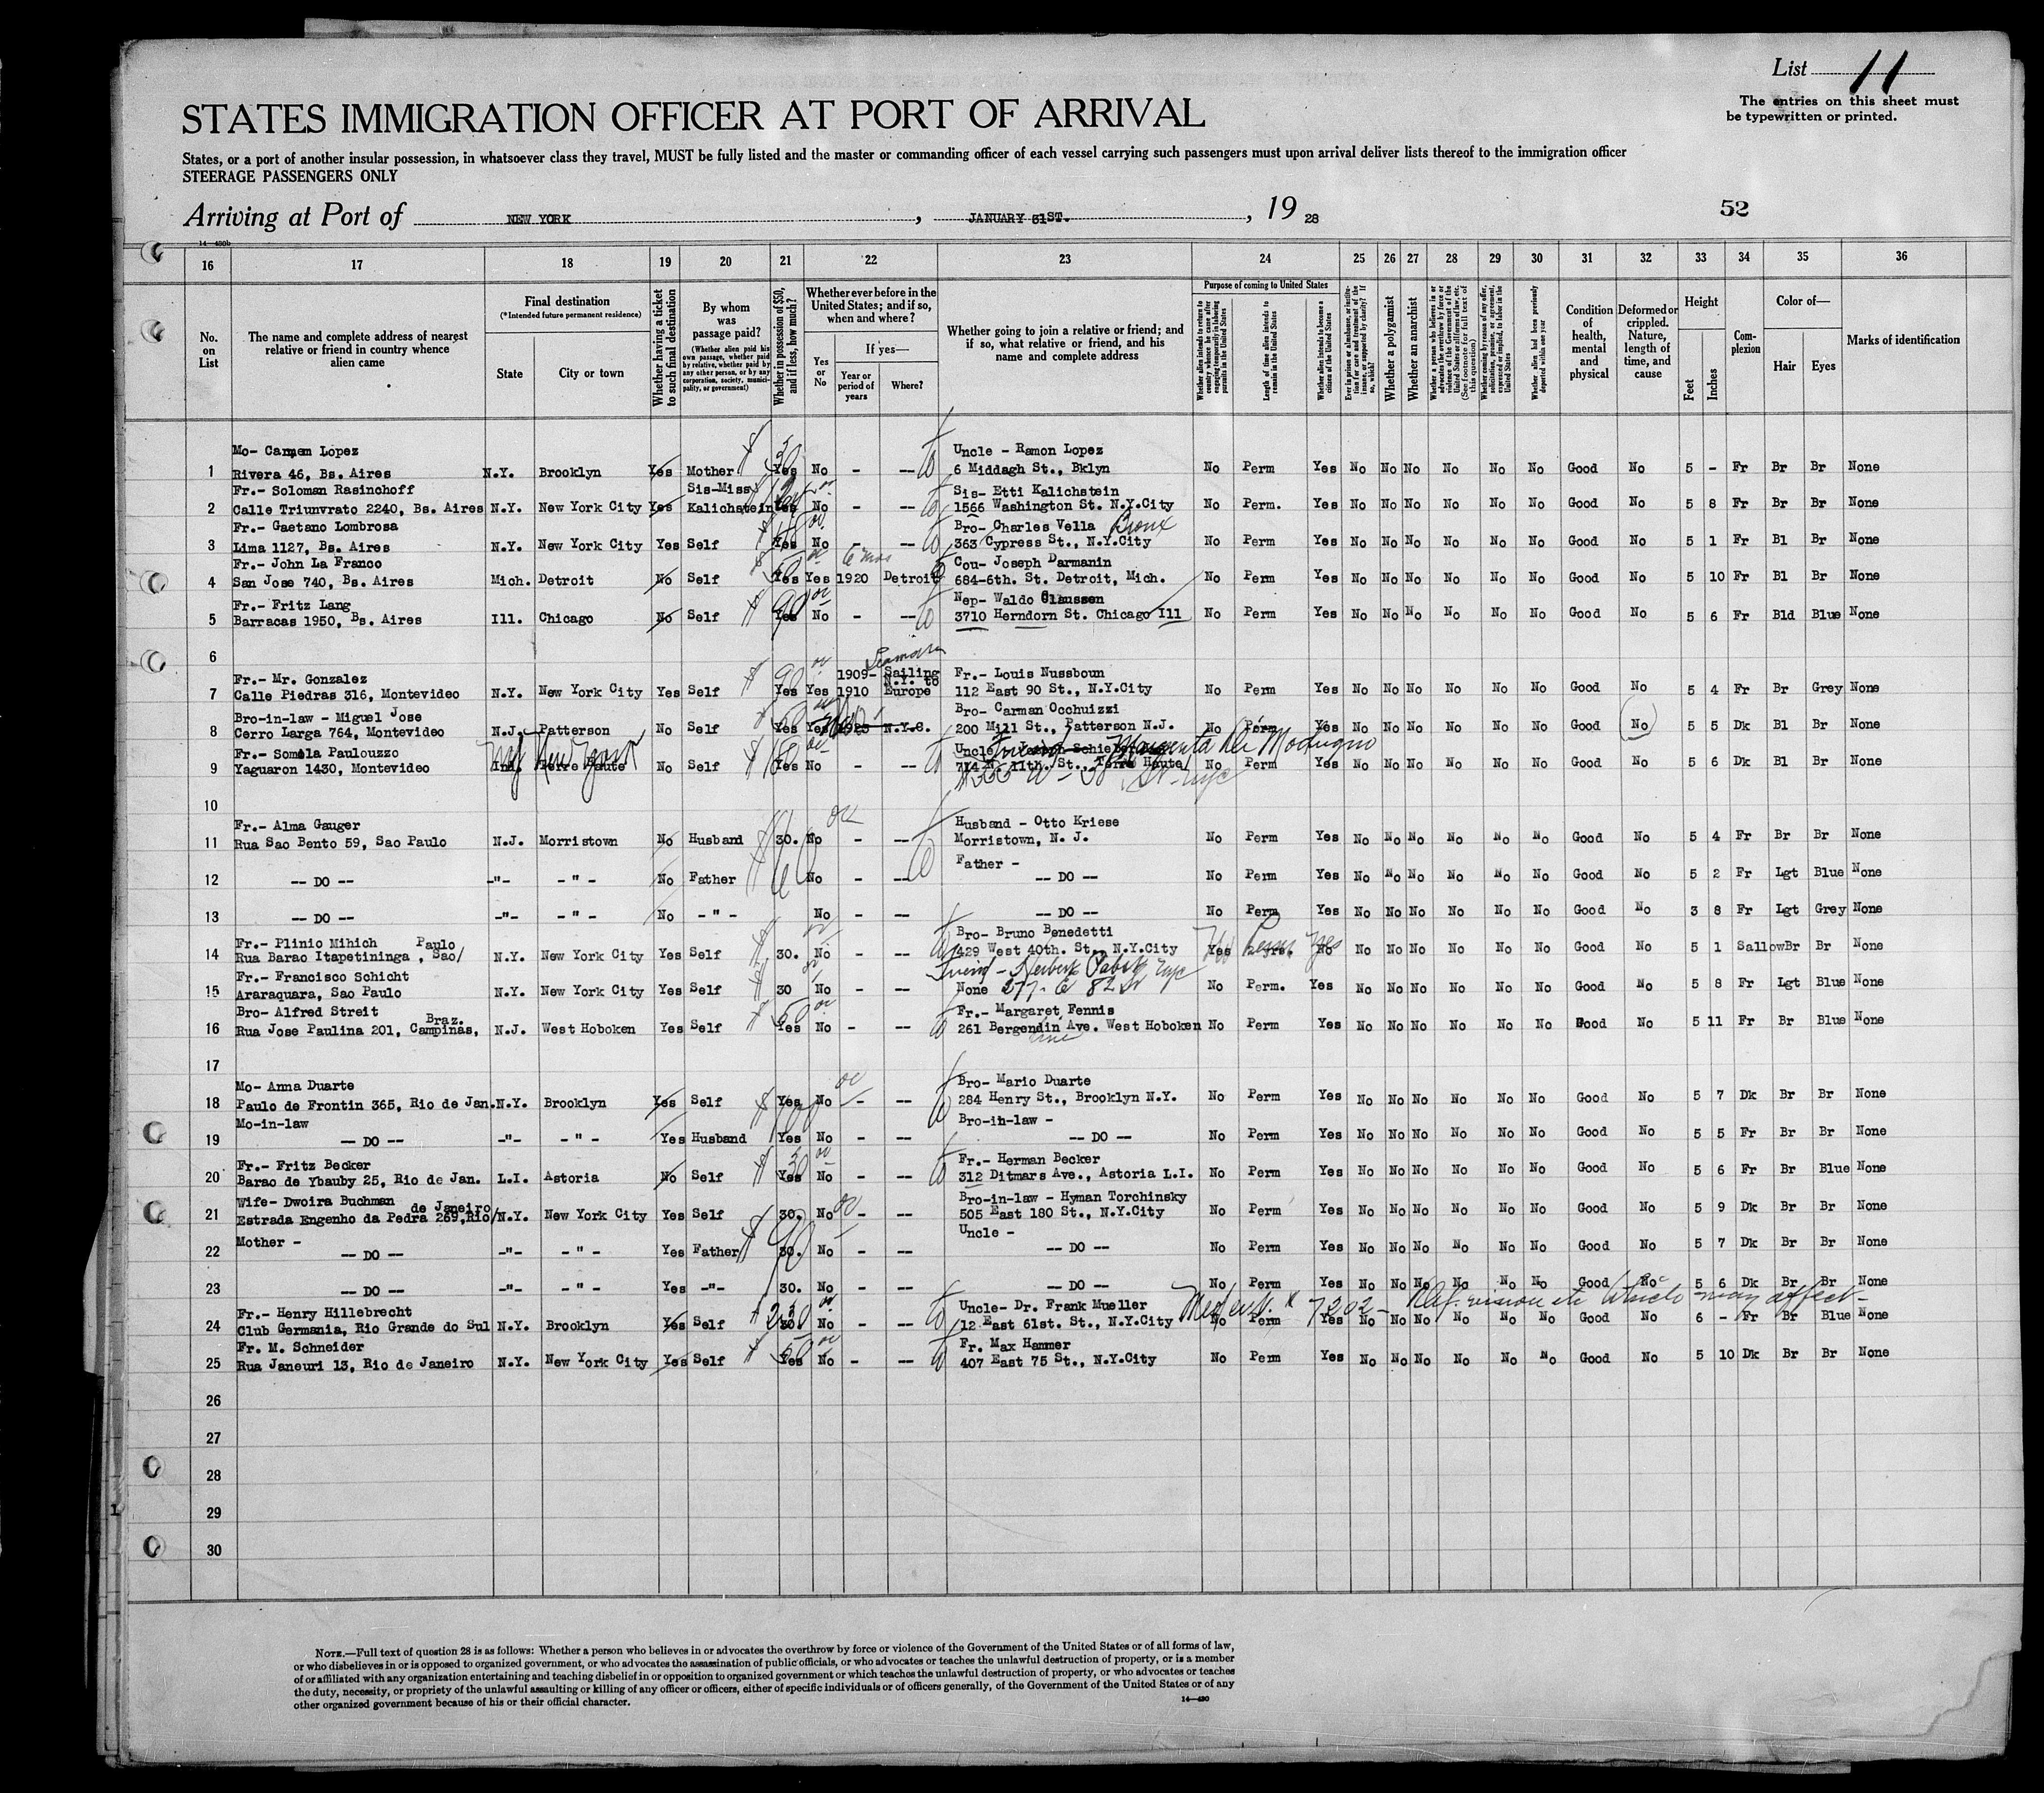 List 11
The entries on this sheet must
be typewritten or printed.
STATES IMMIGRATION OFFICER AT PORT OF ARRIVAL
States, or a port of another insular possession, in whatsoever class they travel, MUST be fully listed and the master or commanding officer of each vessel carrying such passengers must upon arrival deliver lists thereof to the immigration officer
STEERAGE PASSENGERS ONLY
Arriving at Port of NEW YORK, JANUARY 31ST., 19 28
52
14—430b
16 17 18 19 20 21 22 23 24 25 26 27 28 29 30 31 32 33 34 35 36
No. on List
The name and complete address of nearest relative or friend in country whence alien came
Final destination
(*Intended future permanent residence)
State
City or town
Whether having a ticket to such final destination
By whom was passage paid?
(Whether alien paid his own passage, whether paid by relative, whether paid by any other person, or by any corporation, society, municipality, or government)
Whether in possession of $50, and if less, how much?
Whether ever before in the United States; and if so, when and where?
Yes or No
If yes—
Year or period of years
Where?
Whether going to join a relative or friend; and if so, what relative or friend, and his name and complete address
Purpose of coming to United States
Whether alien intends to return to country whence he came after engaging temporarily in laboring pursuits in the United States
Length of time alien intends to remain in the United States
Whether alien intends to become a citizen of the United States
Ever in prison or almshouse, or institution for care and treatment of the insane, or supported by charity? If so, which?
Whether a polygamist
Whether an anarchist
Whether a person who believes in or advocates the overthrow by force or violence of the Government of the United States or all forms of law, etc. (See footnote for full text of this question)
Whether coming by reason of any offer, solicitation, promise, or agreement, expressed or implied, to labor in the United States
Whether alien had been previously deported within one year
Condition of health, mental and physical
Deformed or crippled. Nature, length of time, and cause
Height
Feet
Inches
Complexion
Color of—
Hair
Eyes
Marks of identification
Mo- Carmen Lopez Uncle - Ramon Lopez
1 Rivera 46, Bs. Aires N.Y. Brooklyn Yes Mother Yes No - -- 6 Middagh St., Bklyn No Perm Yes No No No No No No Good No 5 - Fr Br Br None
Fr.- Soloman Rasinchoff Sis-Miss Sis- Etti Kalichstein
2 Calle Triunvrato 2240, Bs. Aires N.Y. New York City Yes Kalichstein Yes No - -- 1566 Washington St. N.Y.City No Perm. Yes No No No No No No Good No 5 8 Fr Br Br None
Fr.- Gaetano Lombrosa Bro- Charles Vella Bronx
3 Lima 1127, Bs. Aires N.Y. New York City Yes Self Yes No - -- 363 Cypress St., N.Y.City No Perm Yes No No No No No No Good No 5 1 Fr Bl Br None
Fr.- John La Franco 6 mos Cou- Joseph Darmanin
4 San Jose 740, Bs. Aires Mich. Detroit No Self Yes Yes 1920 Detroit 684-6th. St. Detroit, Mich. No Perm Yes No No No No No No Good No 5 10 Fr Bl Br None
Fr.- Fritz Lang Nep- Waldo Claussen
5 Barracas 1950, Bs. Aires Ill. Chicago No Self $90 Yes No - -- 3710 Herndorn St. Chicago Ill No Perm Yes No No No No No No Good No 5 6 Fr Bld Blue None
6
Fr.- Mr. Gonzalez 1909- Seaman Sailing N.Y. to Fr.- Louis Nussboum
7 Calle Piedras 316, Montevideo N.Y. New York City Yes Self $90 Yes Yes 1910 Europe 112 East 90 St., N.Y.City No Perm Yes No No No No No No Good No 5 4 Fr Br Grey None
Bro-in-law - Miguel Jose Bro- Carman Occhuizzi
8 Cerro Larga 764, Montevideo N.J. Patterson No Self Yes Yes 1923 N.Y.C. 200 Mill St., Patterson N.J. No Perm Yes No No No No No No Good No 5 5 Dk Bl Br None
Fr.- Somela Paulouzzo Uncle Friend Di Modugno
9 Yaguaron 1430, Montevideo Ind. Terre Haute NY New York No Self Yes No - -- 714 N. 11th. St., Terre Haute No Perm Yes No No No No No No Good No 5 6 Dk Bl Br None
355 W - 38 St - nyc
10
Fr.- Alma Gauger Husband - Otto Kriese
11 Rua Sao Bento 59, Sao Paulo N.J. Morristown No Husband 30. No - -- Morristown, N. J. No Perm Yes No No No No No No Good No 5 4 Fr Br Br None
Father -
12 -- DO -- -"- - " - No Father No - -- -- DO -- No Perm Yes No No No No No No Good No 5 2 Fr Lgt Blue None
13 -- DO -- -"- - " - No - " - No - -- -- DO -- No Perm Yes No No No No No No Good No 3 8 Fr Lgt Grey None
Fr.- Plinio Mihich Paulo Bro- Bruno Benedetti
14 Rua Barao Itapetininga , Sao/ N.Y. New York City Yes Self 30. No - -- 429 West 40th. St., N.Y.City Yes No Perm No Yes No No No No No No Good No 5 1 Sallow Br Br None
Fr.- Francisco Schicht Friend - Herbert Pabst nyc
15 Araraquara, Sao Paulo N.Y. New York City Yes Self 30 No - -- None 277- E 82 St No Perm. Yes No No No No No No Good No 5 8 Fr Lgt Blue None
Bro- Alfred Streit Braz. Fr.- Margaret Fennis
16 Rua Jose Paulina 201, Campinas, N.J. West Hoboken Yes Self Yes No - -- 261 Bergendin Ave. West Hoboken No Perm Yes No No No No No No Good No 5 11 Fr Br Blue None
line
17
Mo- Anna Duarte Bro- Mario Duarte
18 Paulo de Frontin 365, Rio de Jan. N.Y. Brooklyn Yes Self $100 Yes No - -- 284 Henry St., Brooklyn N.Y. No Perm Yes No No No No No No Good No 5 7 Dk Br Br None
Mo-in-law Bro-in-law -
19 -- DO -- -"- - " - Yes Husband Yes No - -- -- DO -- No Perm Yes No No No No No No Good No 5 5 Fr Br Br None
Fr.- Fritz Becker Fr.- Herman Becker
20 Barao de Ybauby 25, Rio de Jan. L.I. Astoria No Self Yes No - -- 312 Ditmars Ave., Astoria L.I. No Perm Yes No No No No No No Good No 5 6 Fr Br Blue None
Wife- Dwoira Buchman de Janeiro Bro-in-law - Hyman Torchinsky
21 Estrada Engenho da Pedra 269,Rio/ N.Y. New York City Yes Self 30. No - -- 505 East 180 St., N.Y.City No Perm Yes No No No No No No Good No 5 9 Dk Br Br None
Mother - Uncle -
22 -- DO -- -"- - " - Yes Father $90 30. No - -- -- DO -- No Perm Yes No No No No No No Good No 5 7 Dk Br Br None
23 -- DO -- -"- - " - Yes -"- 30. No - -- -- DO -- No Perm Yes No No No No No No Good No 5 6 Dk Br Br None
Fr.- Henry Hillebrecht Uncle- Dr. Frank Mueller Med cert. # 7202- Def. vision etc which may affect
24 Club Germania, Rio Grande do Sul N.Y. Brooklyn Yes Self $230 30. No - -- 12 East 61st. St., N.Y.City No Perm Yes No No No No No No Good No 6 - Fr Br Blue None
Fr. M. Schneider Fr. Max Hammer
25 Rua Janeuri 13, Rio de Janeiro N.Y. New York City Yes Self $50 Yes No - -- 407 East 75 St., N.Y.City No Perm Yes No No No No No No Good No 5 10 Dk Br Br None
26
27
28
29
30
NOTE.—Full text of question 28 is as follows: Whether a person who believes in or advocates the overthrow by force or violence of the Government of the United States or of all forms of law,
or who disbelieves in or is opposed to organized government, or who advocates the assassination of public officials, or who advocates or teaches the unlawful destruction of property, or is a member
of or affiliated with any organization entertaining and teaching disbelief in or opposition to organized government or which teaches the unlawful destruction of property, or who advocates or teaches
the duty, necessity, or propriety of the unlawful assaulting or killing of any officer or officers, either of specific individuals or of officers generally, of the Government of the United States or of any
other organized government because of his or their official character.
14—430